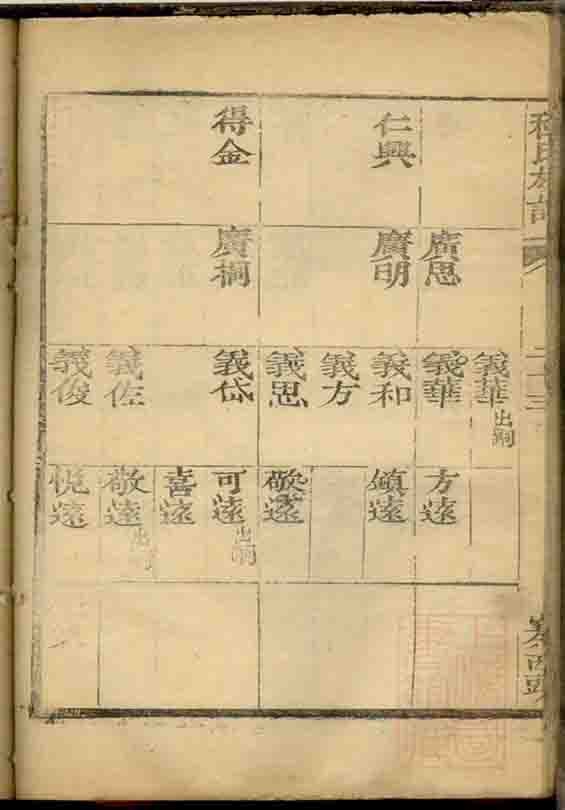 氏族譜
仁興
得金
廣思
廣明
廣桐
義華出嗣
義華
義和
義方
義思
義岱
義佐
義俊
方遠
鎮遠
敬遠
可遠出嗣
喜遠
敬遠出嗣
悅遠